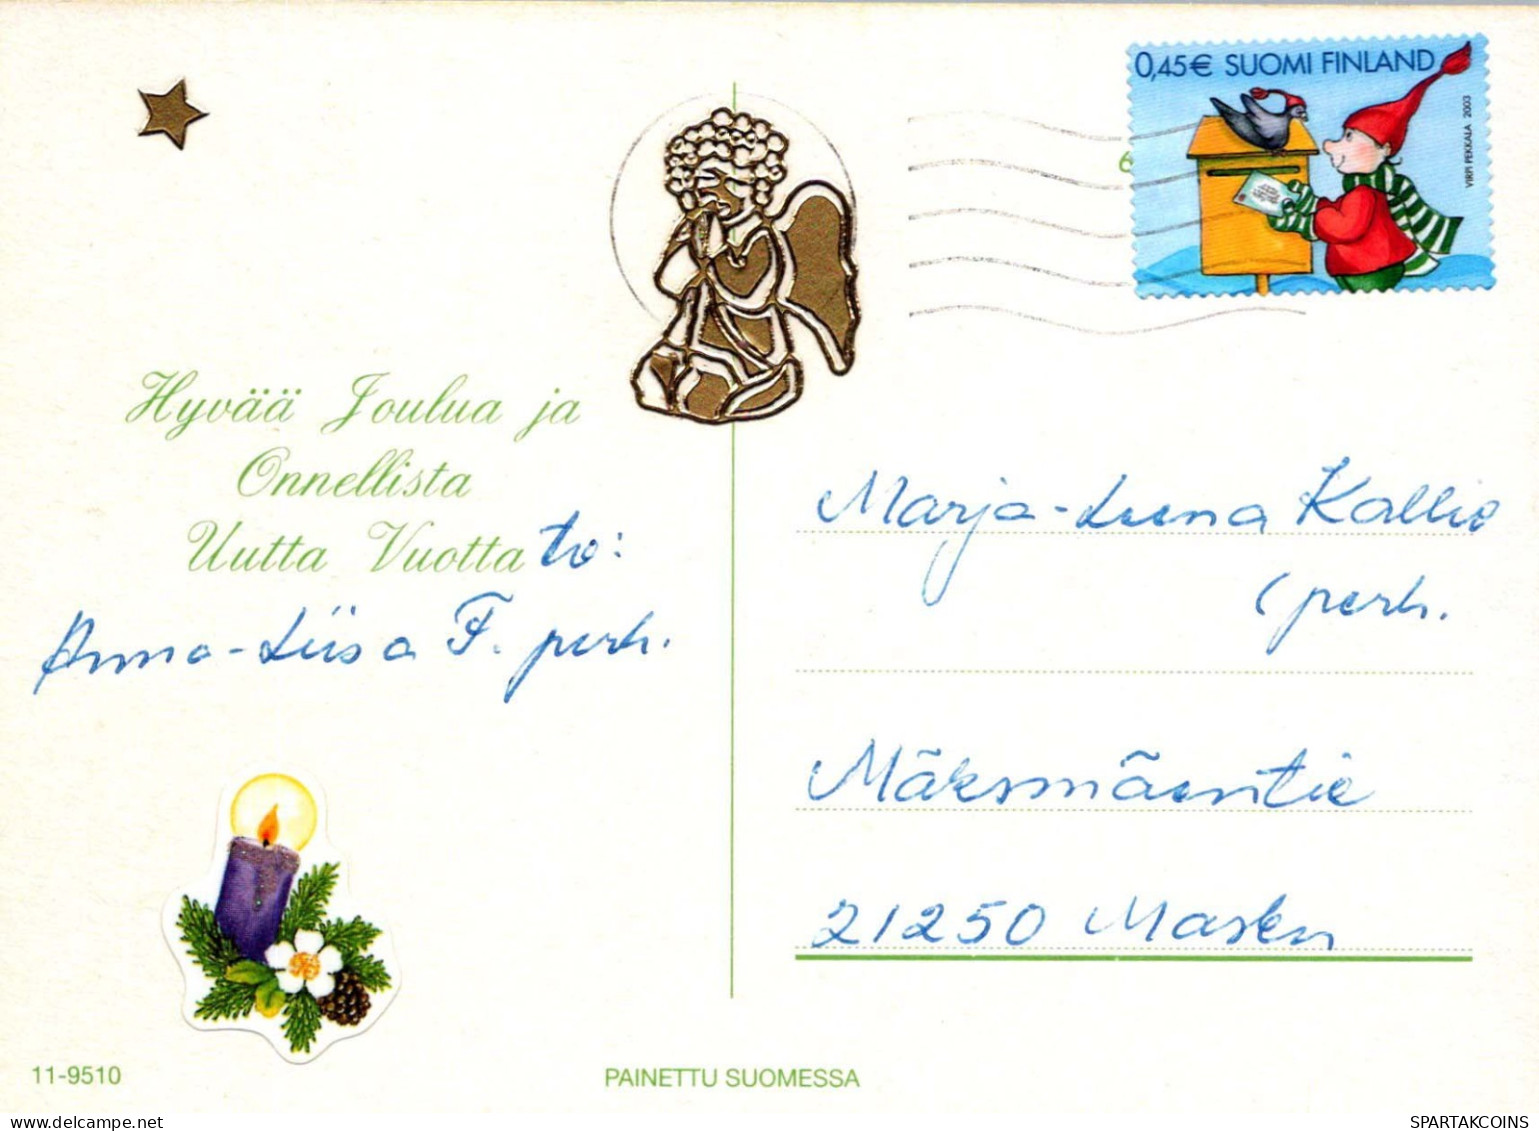 0,45€ SUOMI FINLAND
VIRPI PEKKALA 2003
Hyvää Joulua ja
Onnellista
Uutta Vuotta to:
Anna-Liisa F. perh.
Marja-Leena Kallio
perh.
Mäksmäentie
21250 Masku
11-9510
PAINETTU SUOMESSA
SPARTAKCOINS.COM